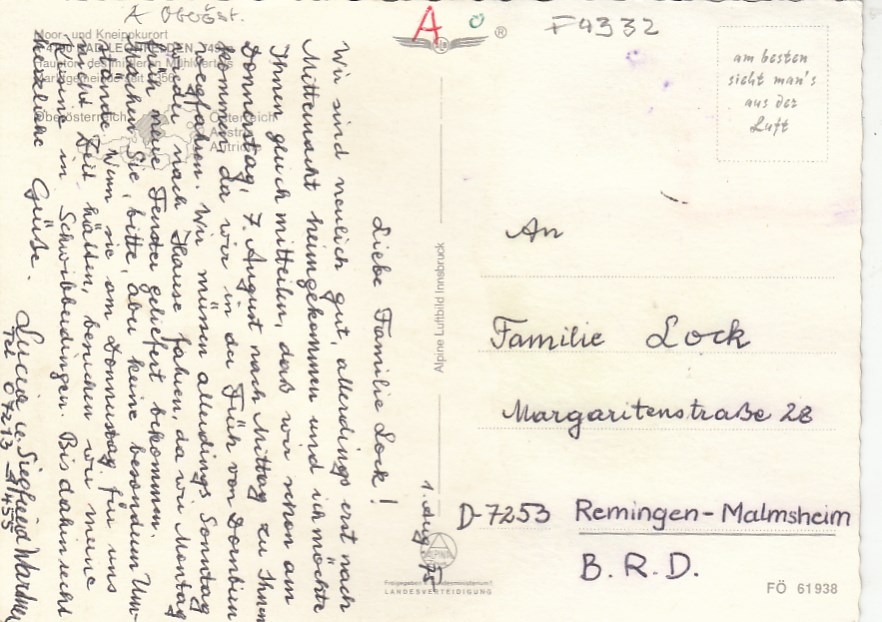 A Oberöst.
Moor- und Kneippkurort
Oberösterreich
Österreich
Austria
Autriche
1. Aug. 75
Liebe Familie Lock!
Wir sind neulich gut, allerdings erst nach
Mitternacht heimgekommen und ich möchte
Ihnen gleich mitteilen, daß wir schon am
Donnerstag, 7. August nach Mittag zu Ihnen
kommen, da wir in der Früh von Dornbirn
wegfahren. Wir müssen allerdings Sonntag
wieder nach Hause fahren, da wir Montag
früh neue Fenster geliefert bekommen.
Machen Sie, bitte, aber keine besonderen Um-
stände. Wenn sie am Donnerstag für uns
nicht Zeit hätten, besuchen wir meine
Kusine in Schwibbeidingen. Bis dahin recht
herzliche Grüße.
Lucia u. Siegfried Wardner
Tel 07213
Alpine Luftbild Innsbruck
ALPINE
LANDESVERTEIDIGUNG
A
®
F4332
am besten
sieht man's
aus der
Luft
An
Familie Lock
Margaritenstraße 28
D-7253 Remingen-Malmsheim
B.R.D.
FÖ 61938